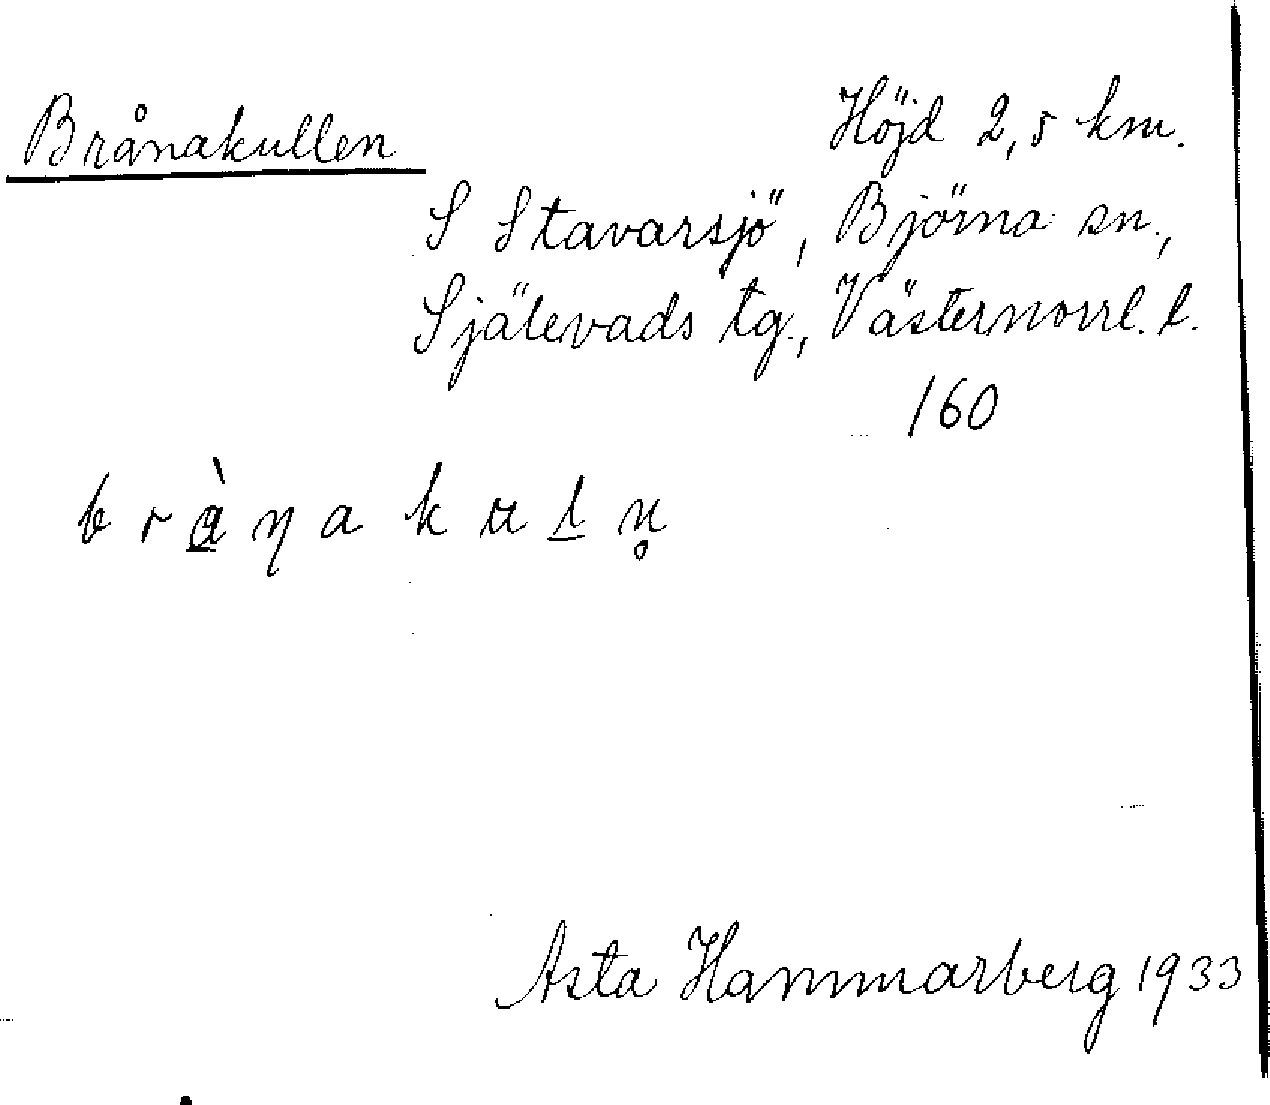 Brånakullen
Höjd 2,5 km.
S Stavarsjö, Björna sn.,
Själevads tg., Västernorrl. l.
160
Asta Hammarberg 1933